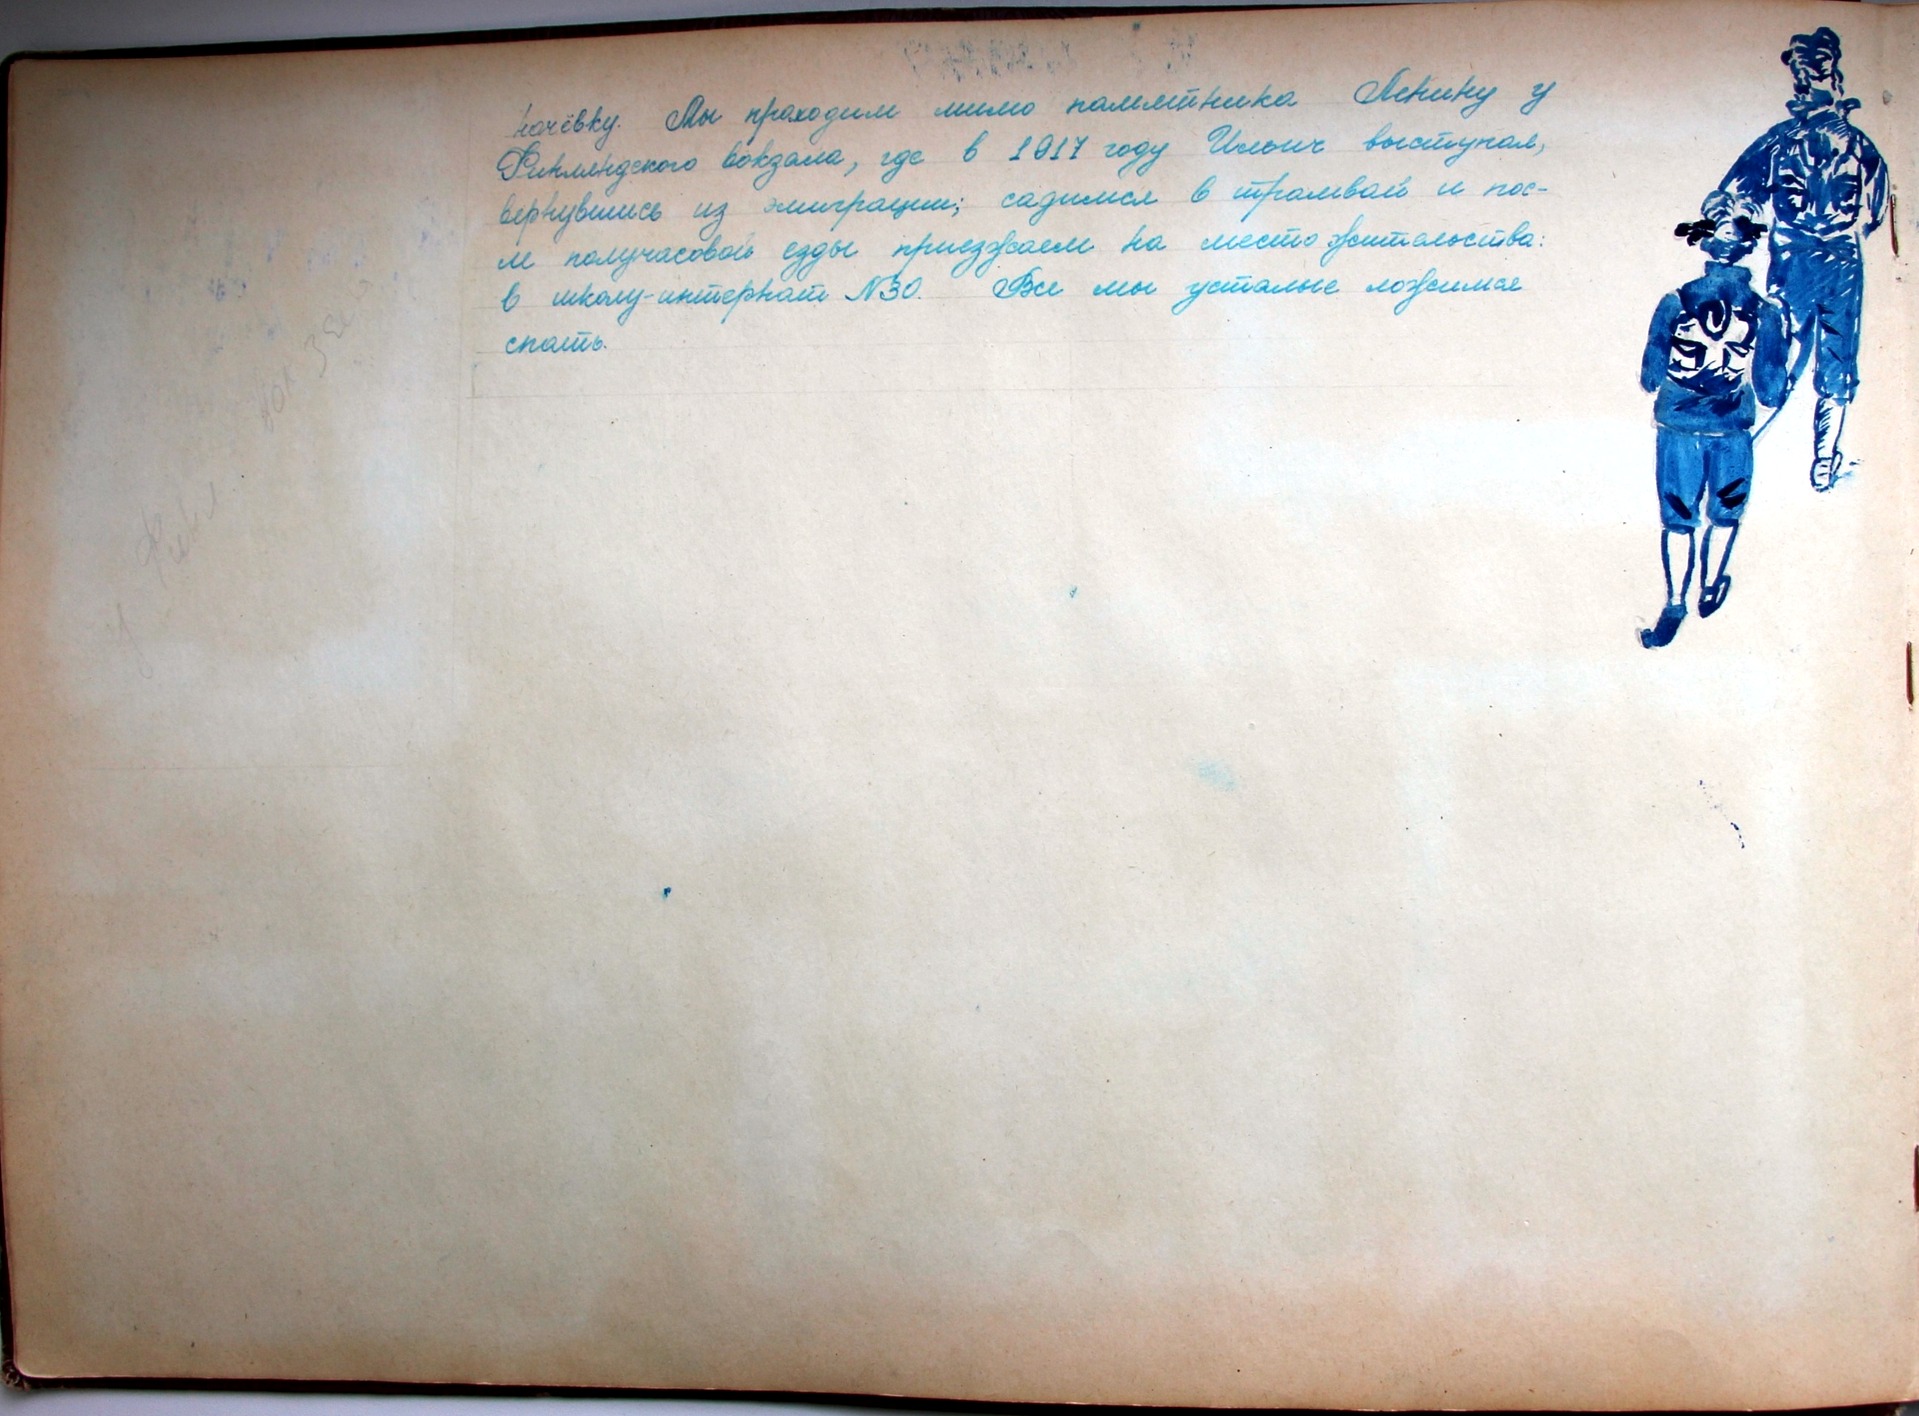 ночёвку. Мы проходим мимо памятника Ленину у
Финляндского вокзала, где в 1917 году Ильич выступал,
вернувшись из эмиграции; садимся в трамвай и пос-
ле получасовой езды приезжаем на место жительства:
в школу-интернат №30. Все мы усталые ложимся
спать.